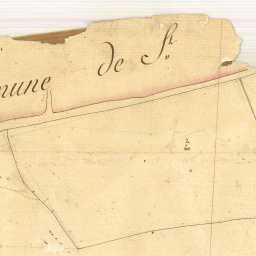 mune de St.